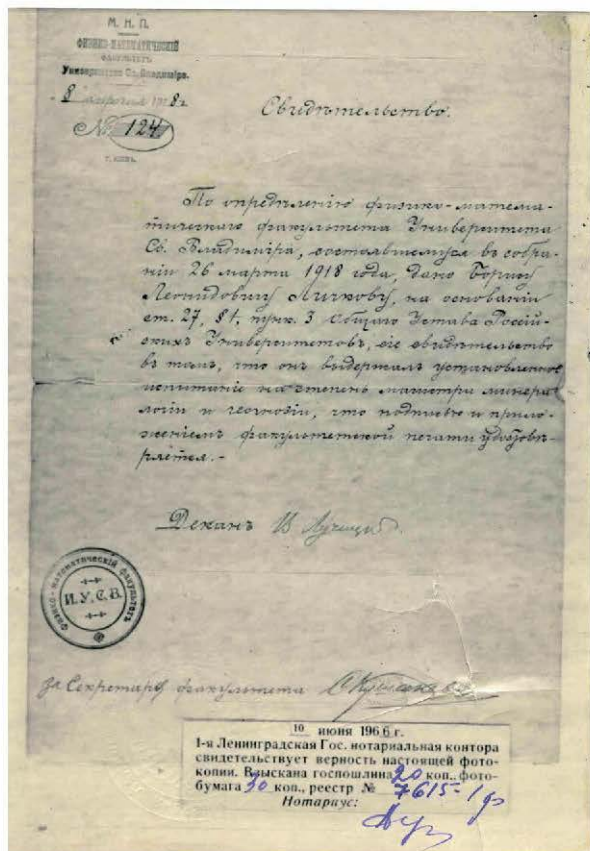 М. Н. П.
ФИЗИКО-МАТЕМАТИЧЕСКІЙ
ФАКУЛЬТЕТЪ
Университета Св. Владиміра.
8 апрѣля 1918 г.
№ 124
Г. КІЕВЪ.
Свидѣтельство.
По опредѣленію физико-матема-
тическаго факультета Университета
Св. Владиміра, состоявшемуся въ собра-
ніи 26 марта 1918 года, дано Борису
Леонидовичу Личкову, на основаніи
ст. 27, § 1, пунк. 3 Общаго Устава Россій-
скихъ Университетовъ, сіе свидѣтельство
въ томъ, что онъ выдержалъ установленное
испытаніе на степень магистра минера
логіи и геогнозіи, что подписью и прило-
женіемъ факультетской печати удостовѣ-
ряется.-
Деканъ В Лучицкій
физико-математическій факультетъ
И.У.С.В.
За Секретаря факультета
10 июня 1966 г.
1-я Ленинградская Гос. нотариальная контора
свидетельствует верность настоящей фото-
копии. Взыскана госпошлина 20 коп., фото-
бумага 30 коп., реестр № 7615-1
Нотариус: